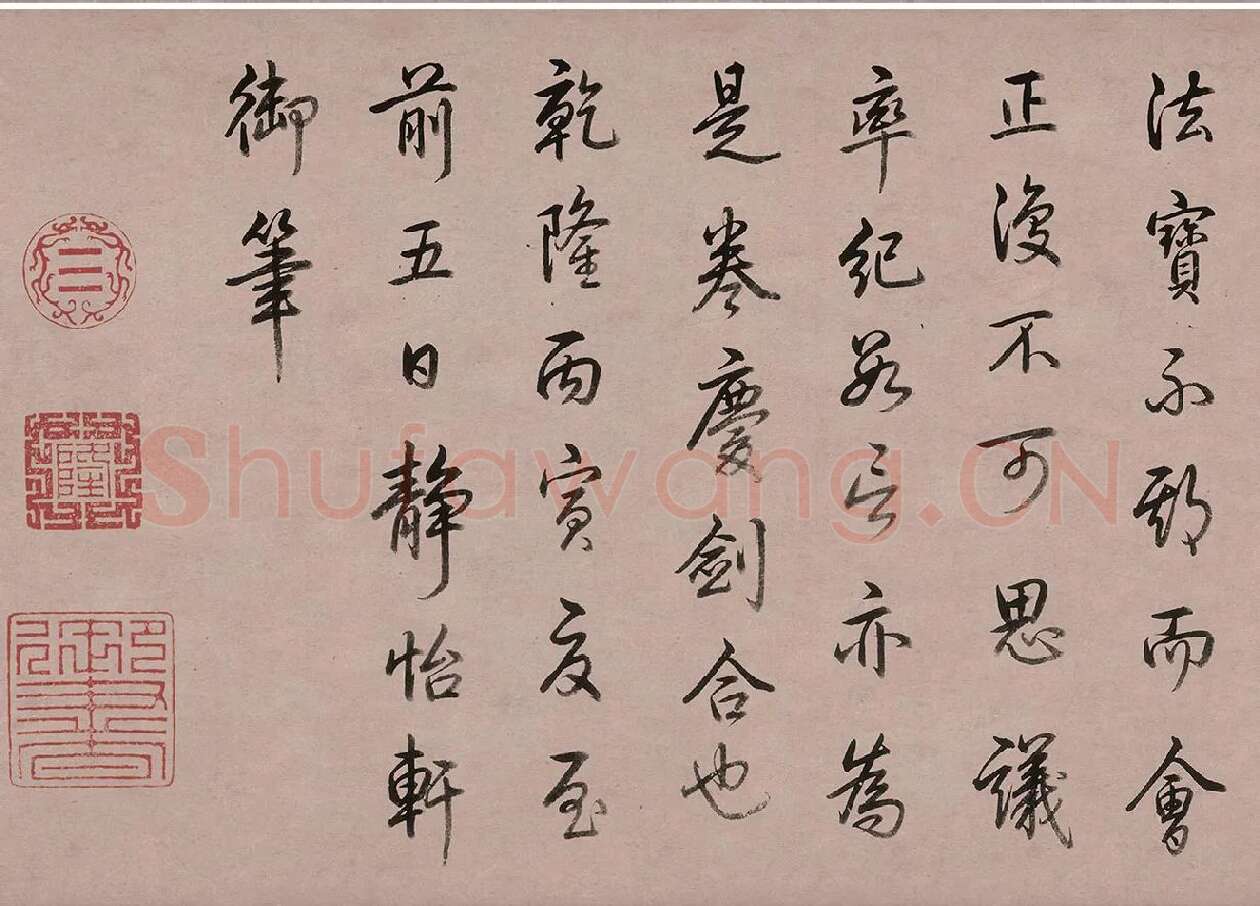 法寶不期而會
正復不可思議
率紀數言亦為
是卷慶劍合也
乾隆丙寅夏至
前五日靜怡軒
御筆
御書
Shufawang.CN